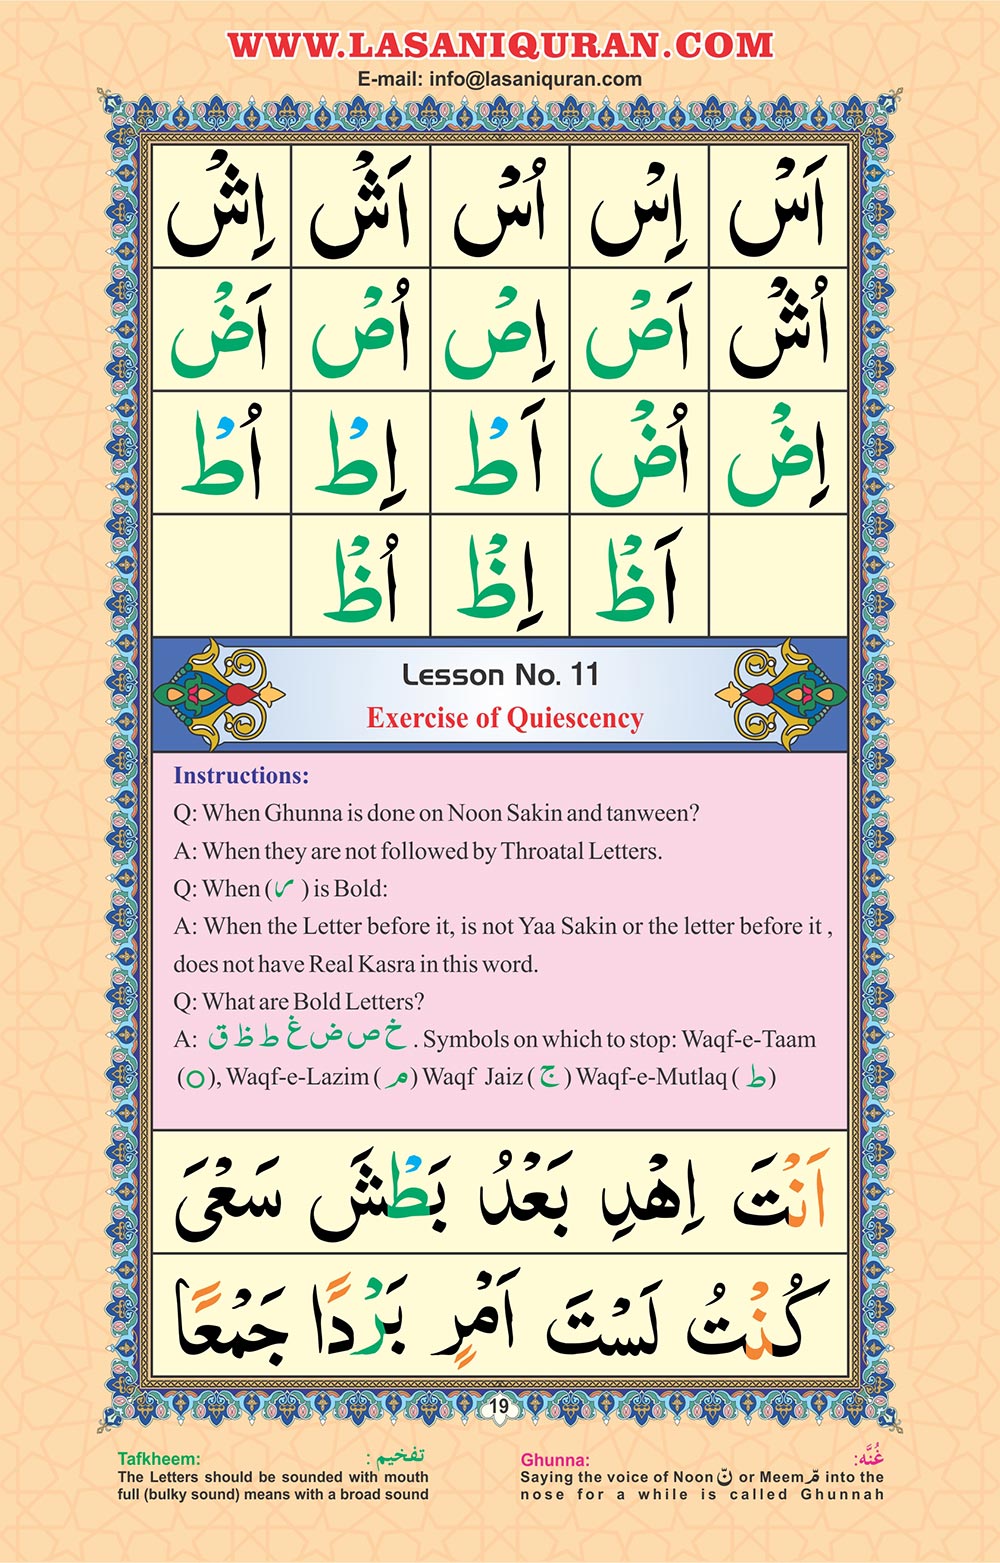 WWW.LASANIQURAN.COM
E-mail: info@lasaniquran.com
اَسْ اِسْ اُسْ اَشْ اِشْ
اُشْ اَصْ اِصْ اُصْ اَضْ
اِضْ اُضْ اَطْ اِطْ اُطْ
اَظْ اِظْ اُظْ
Lesson No. 11
Exercise of Quiescency
Instructions:
Q: When Ghunna is done on Noon Sakin and tanween?
A: When they are not followed by Throatal Letters.
Q: When (ر) is Bold:
A: When the Letter before it, is not Yaa Sakin or the letter before it ,
does not have Real Kasra in this word.
Q: What are Bold Letters?
A: خ ص ض غ ط ظ ق . Symbols on which to stop: Waqf-e-Taam
(O), Waqf-e-Lazim (م) Waqf Jaiz (ج) Waqf-e-Mutlaq (ط)
اَنْتَ اِهْدِ بَعْدُ بَطْشَ سَعْىَ
كُنْتُ لَسْتَ اَمْرٍ بَرْدًا جَمْعًا
19
Tafkheem: تفخيم :
The Letters should be sounded with mouth
full (bulky sound) means with a broad sound
Ghunna: غُنَّه:
Saying the voice of Noon نّ or Meem مّ into the
nose for a while is called Ghunnah